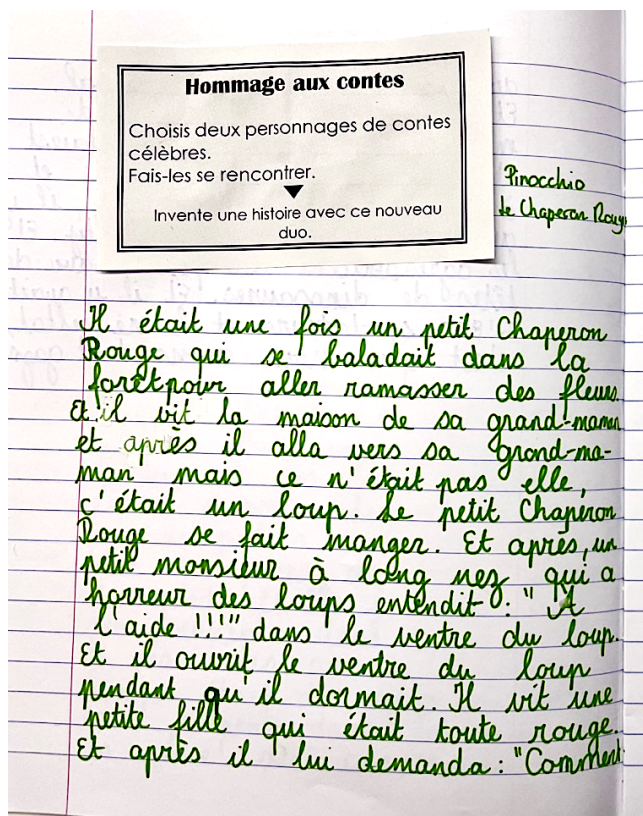 Hommage aux contes
Choisis deux personnages de contes
célèbres.
Fais-les se rencontrer.
Invente une histoire avec ce nouveau
duo.
Pinocchio
Le Chaperon Rouge
Il était une fois un petit Chaperon
Rouge qui se baladait dans la
forêt pour aller ramasser des fleurs.
Et il vit la maison de sa grand-maman
et après il alla vers sa grand-ma-
man mais ce n'était pas elle,
c'était un loup. Le petit Chaperon
Rouge se fait manger. Et après, un
petit monsieur à long nez qui a
horreur des loups entendit : "A
l'aide !!!" dans le ventre du loup.
Et il ouvrit le ventre du loup
pendant qu'il dormait. Il vit une
petite fille qui était toute rouge.
Et après il lui demanda : "Comment